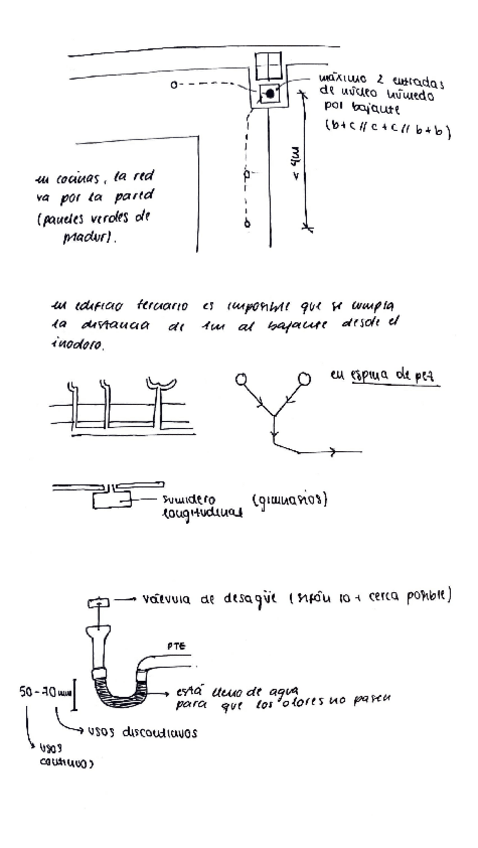 máximo 2 entradas
de núcleo húmedo
por bajante
(b+c // c+c // b+b)
< 4m
en cocinas, la red
va por la pared
(paneles verdes de
pladur).
en edificio terciario es imposible que se cumpla
la distancia de 1m al bajante desde el
inodoro.
en espina de pez
sumidero (gimnasios)
longitudinal
válvula de desagüe (sifón lo + cerca posible)
PTE
50-70mm
está lleno de agua
para que los olores no pasen
usos discontinuos
usos
continuos